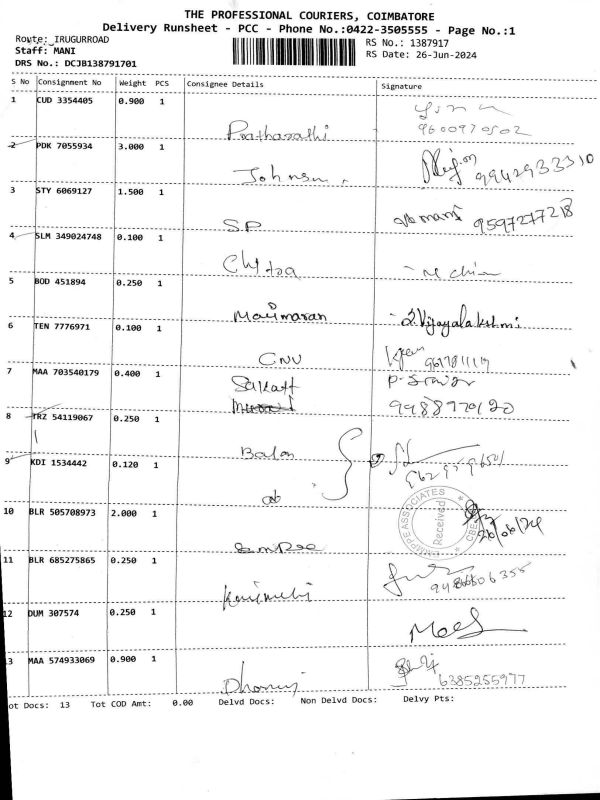 THE PROFESSIONAL COURIERS, COIMBATORE
Delivery Runsheet - PCC - Phone No.:0422-3505555 - Page No.:1
Route: IRUGURROAD
RS No.: 1387917
Staff: MANI
RS Date: 26-Jun-2024
DRS No.: DCJB138791701
S No Consignment No Weight PCS Consignee Details Signature
1 CUD 3354405 0.900 1
9600970502
2 PDK 7055934 3.000 1
Johnson 9942933310
3 STY 6069127 1.500 1
SP mani 9597277218
4 SLM 349024748 0.100 1
Chitra
5 BOD 451894 0.250 1
Manimaran Vijayalakshmi
6 TEN 7776971 0.100 1
CNU
7 MAA 703540179 0.400 1
9988970120
8 TRZ 54119067 0.250 1
9 KDI 1534442 0.120 1
do
10 BLR 505708973 2.000 1
ASSOCIATES
Received
26/06/24
11 BLR 685275865 0.250 1
12 DUM 307574 0.250 1
13 MAA 574933069 0.900 1
6385255977
ot Docs: 13 Tot COD Amt: 0.00 Delvd Docs: Non Delvd Docs: Delvy Pts: